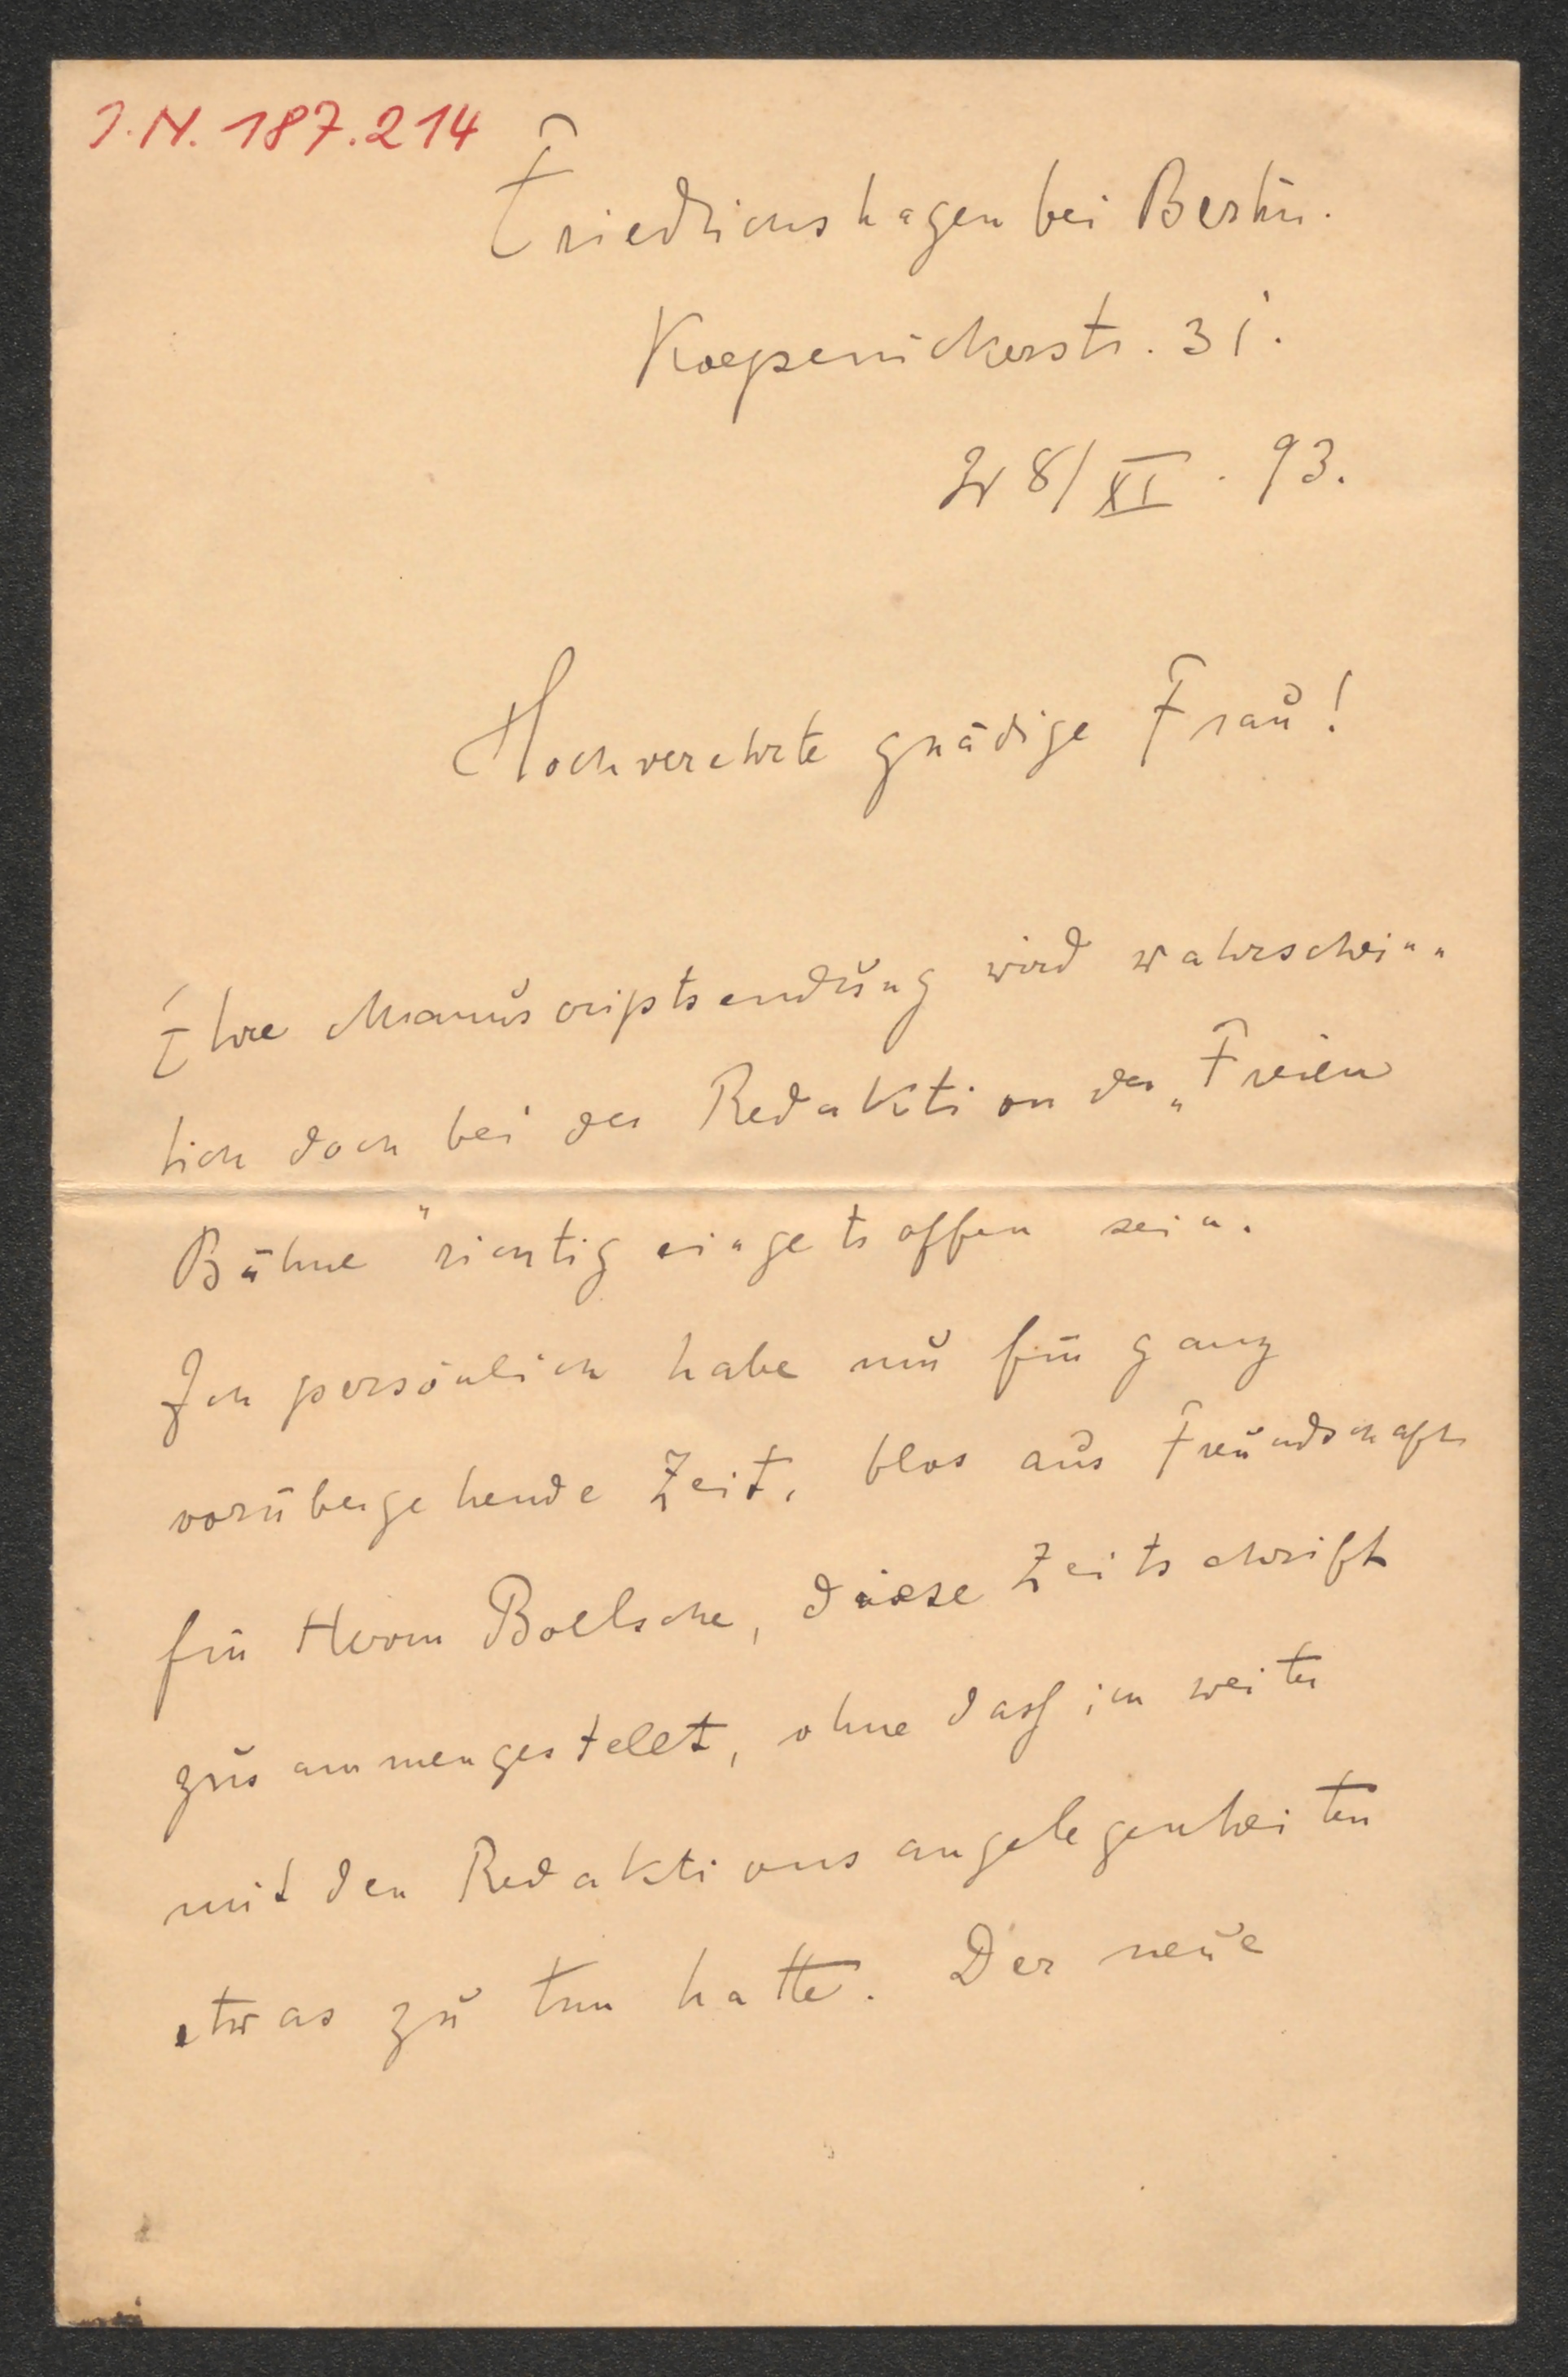 I.N. 187.214
Friedrichshagen bei Berlin.
Koepenickerstr. 31.
28/XI. 93.
Hochverehrte gnädige Frau!
Ihre Manuscriptsendung wird wahrschein-
lich doch bei der Redaktion der „Freien
Bühne" richtig eingetroffen sein.
Ich persönlich habe nur für ganz
vorübergehende Zeit, blos aus Freundschaft
für Herrn Boelsche, diese Zeitschrift
zusammengestellt, ohne dass ich weiter
mit den Redaktionsangelegenheiten
etwas zu tun hatte. Der neue